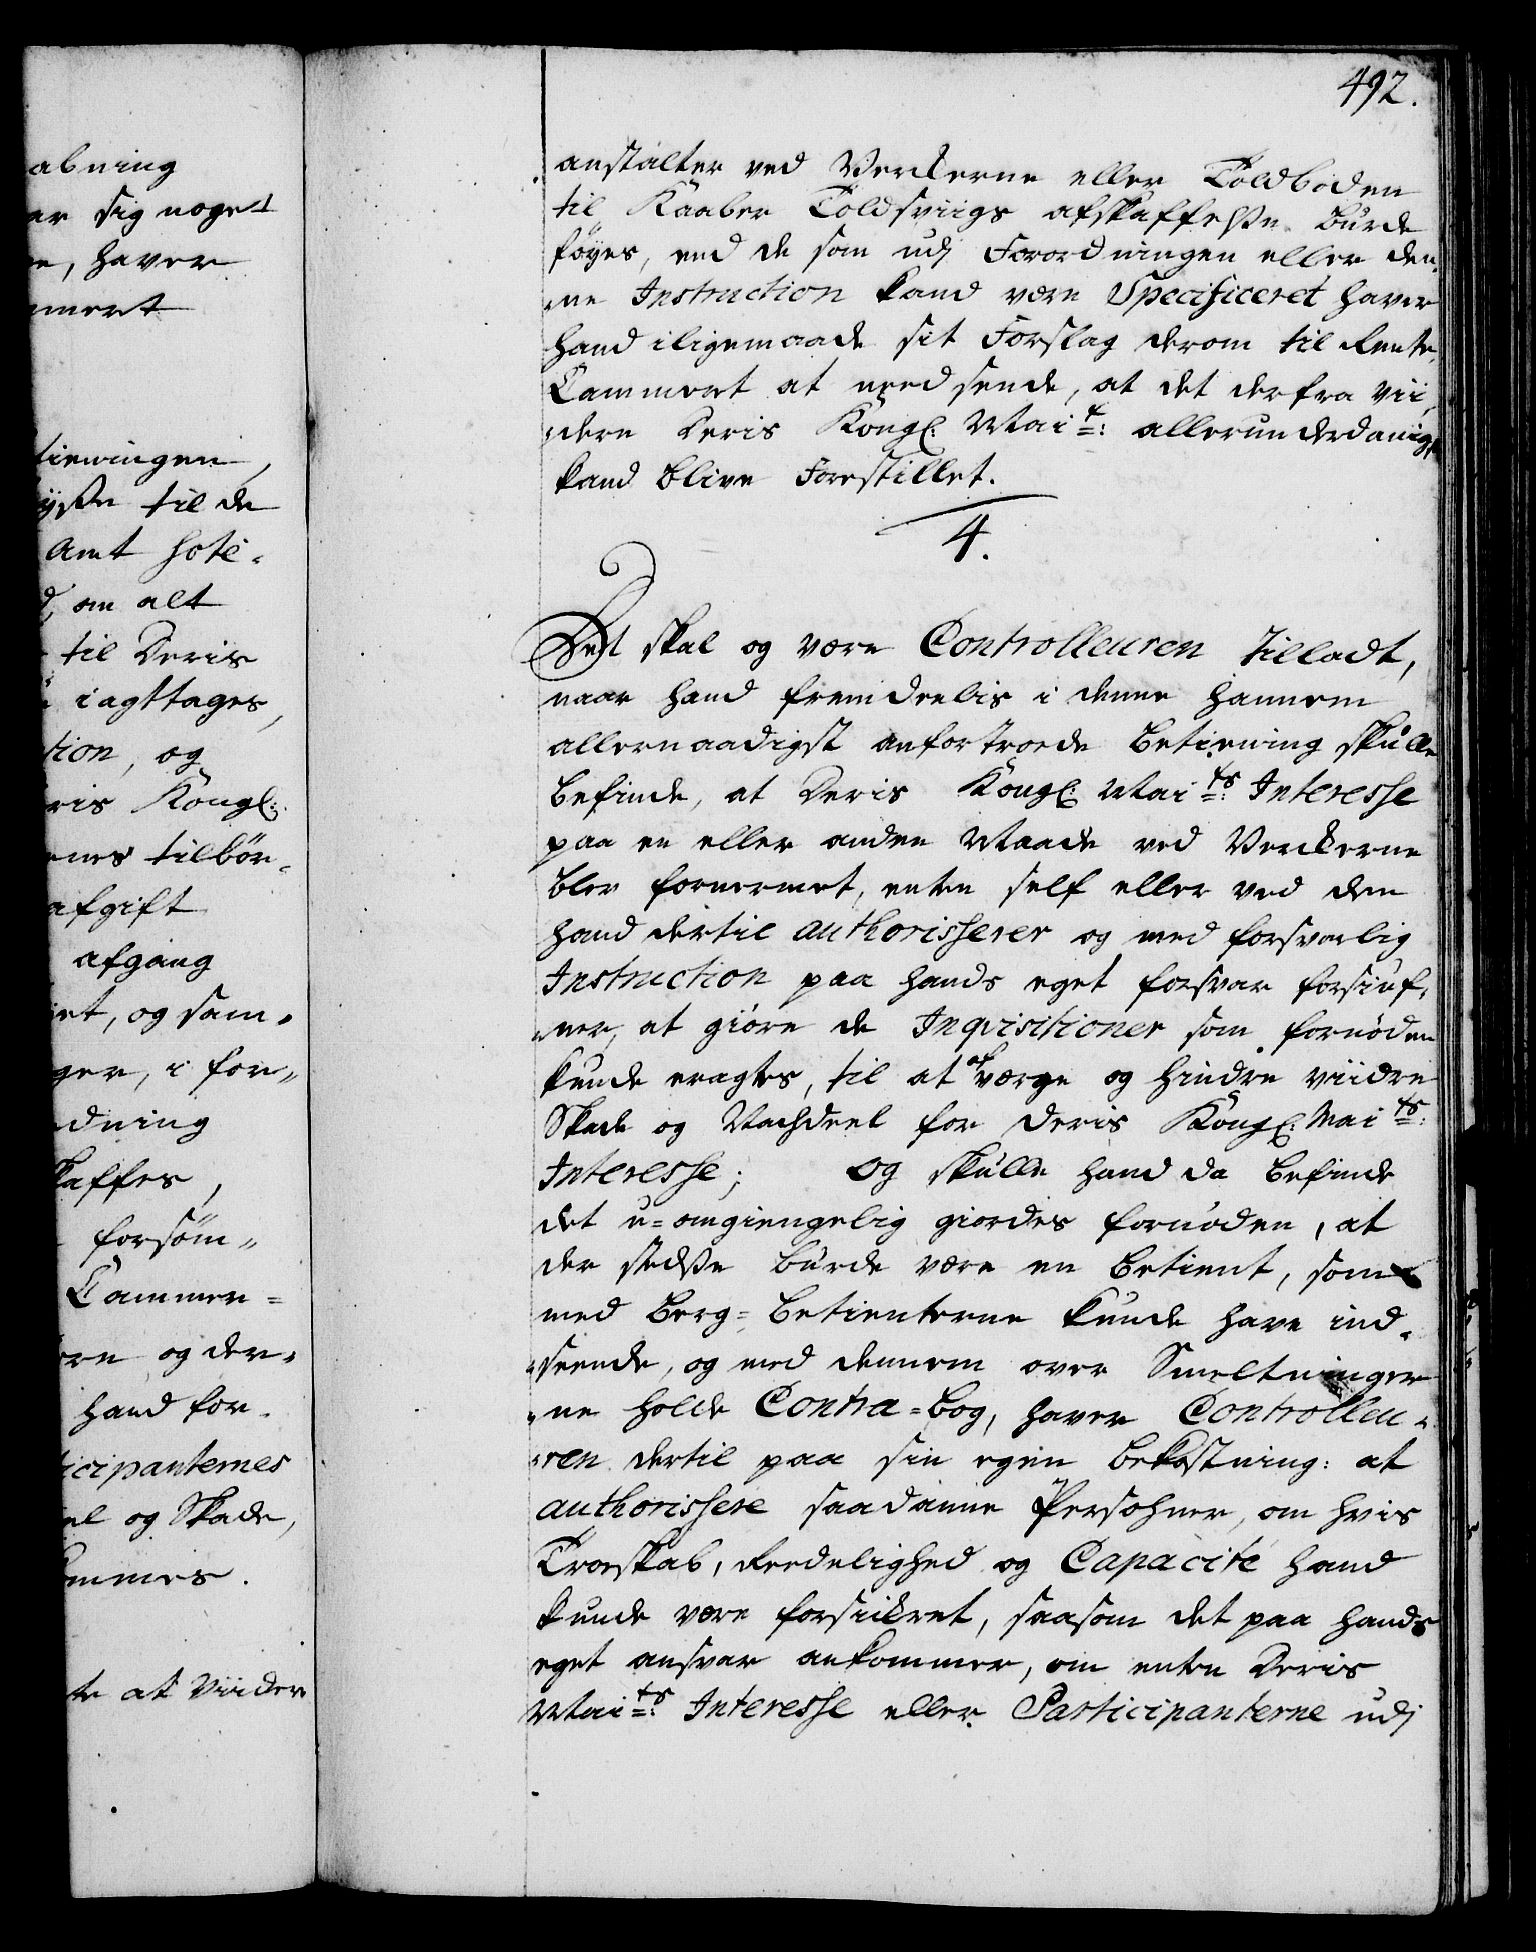 492.
abning
ar sig noget
e, haver
mert
tieningen,
ysse til de
Amt hote-
d, om alt
til Deris
iagttages,
tion, og
ris Kongl:
enes tilbør-
afgift
afgang
et, og sam-
ger, i for-
dning
kaffes,
forsøm-
Cammer-
ere og der-
hand for-
icipanternes
el og Skade,
kommes.
te at Viider
anstalter ved Verckerne eller Toldboden
til Kaaber Toldsviigs afskaffelsse burde
føyes, end de som udj Forordningen eller den-
ne Instruction kand være Specificeret haver
hand iligemaade sit Forslag derom til Rente
Cammeret at needsende, at det derfra vii-
dere Deris Kongl: Mait: allerunderdanigst
kand blive Forestillet.
4.
Det skal og være Controlleuren tilladt,
naar hand fremdeelis i denne hannem
allernaadigst anfortroede betiening skulle
befinde, at Deris Kongl: Maits: Interesse
paa en eller anden Maade ved Verckerne
blev fornermet, enten self eller ved dem
hand dertil authorisserer og med forsvarlig
Instruction paa hands eget forsvar forsiuf-
ner, at giøre de Inqvisitioner som fornøden
kunde eragtes, til at afværge og hindre viidre
Skade og Nachdeel for Deris Kongl: Maits:
Interesse; Og skulle hand da befinde
det u-omgiengelig giordes fornøden, at
der stedsse burde være en betient, som
med Berg-betienterne kunde have ind-
seende, og med dennem over Smeltninger-
ne holde Contra-bog, haver Controlleu-
ren dertil paa sin egen bekostning: at
authorissere saadanne Persohner, om hvis
Troeskab, Reedelighed og Capacité hand
kunde være forsiikret, saasom det paa hands
eget ansvar ankommer, om enten Deris
Maits: Interesse eller Participanterne udj